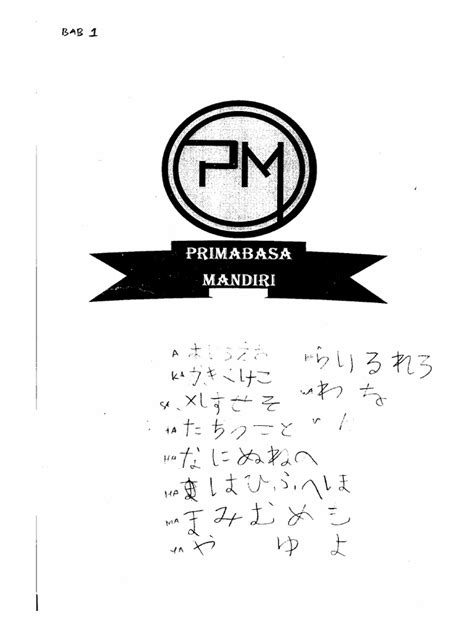 BAB 1
PM
PRIMABASA
MANDIRI
A あいうえお らりるれろ
KA かきくけこ わ
しすせそ
TA たちつ と
なにぬね
HA はひふへほ
MA まみむめも
YA や ゆ よ